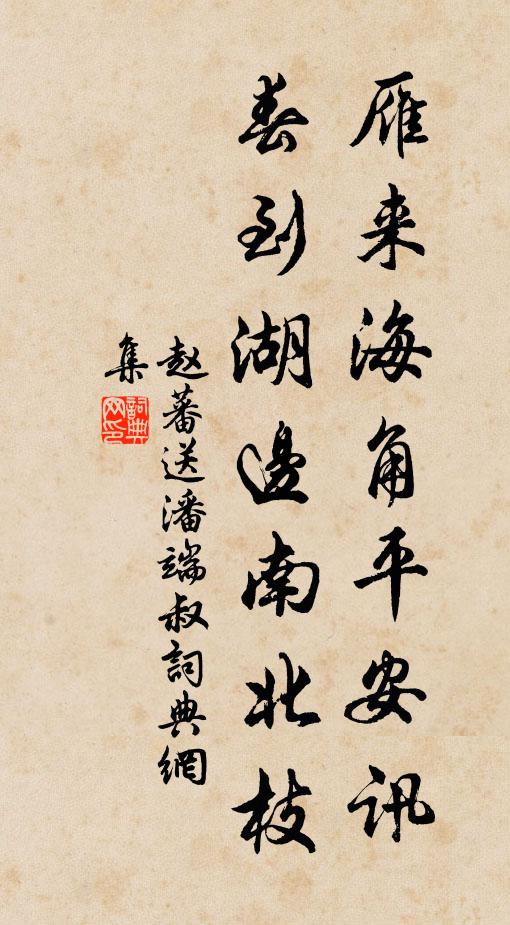 雁来海角平安訊
春到湖邊南北枝
赵蕃送潘端叔詞典網
集
詞典网印